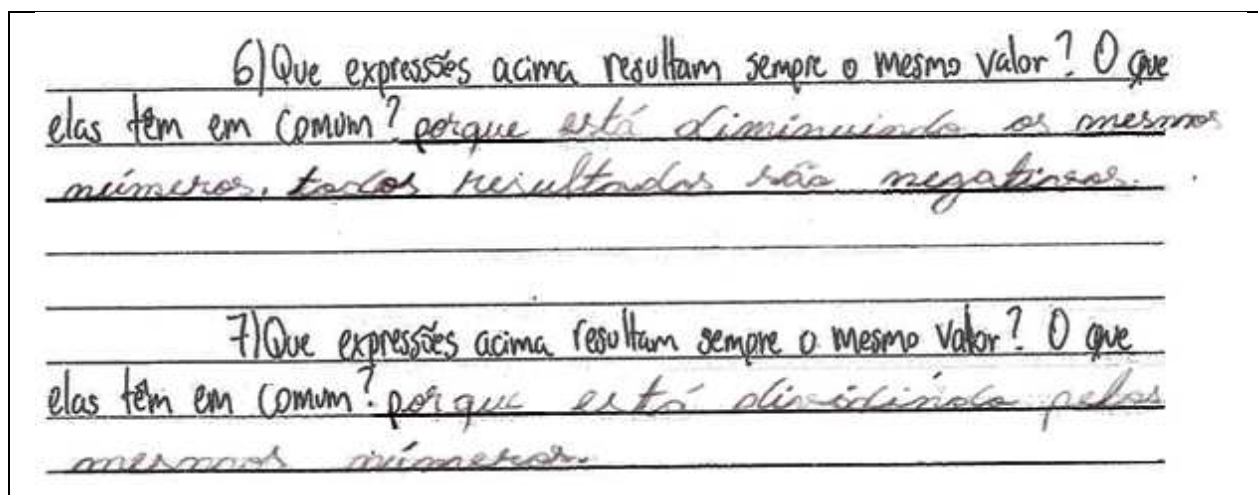 6) Que expressões acima resultam sempre o mesmo valor? O que
elas têm em comum? porque está diminuindo os mesmos
números, todos resultados são negativos.
7) Que expressões acima resultam sempre o mesmo valor? O que
elas têm em comum? porque está dividindo pelos
mesmos números.